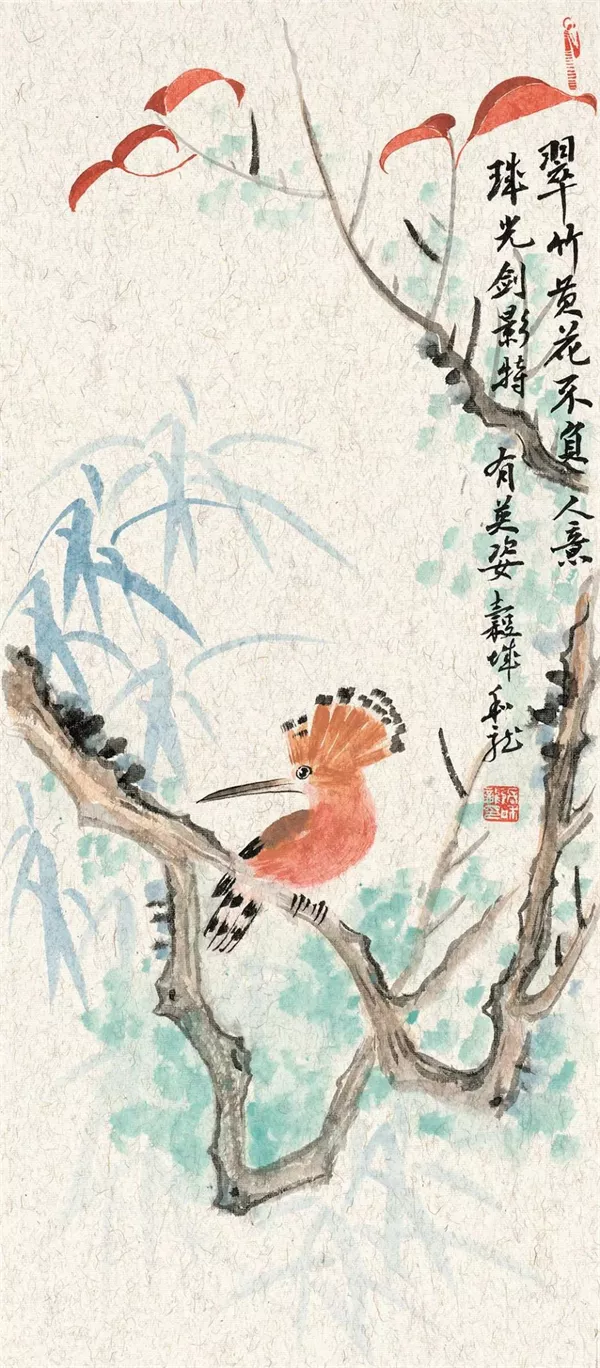 翠竹黄花不負人意
珠光剑影特有英姿